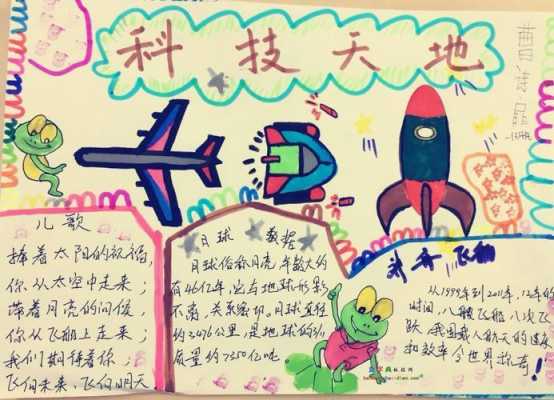 科技天地
儿歌
捧着太阳的祝福,
你从太空中走来;
带着月亮的问候,
你从飞船上走来;
我们期待着你;
飞向未来、飞向明天
月球 数据
月球俗称月亮,年龄大约
有46亿年,它与地球形影
不离,关系密切,月球直径
约3476公里,是地球的3/11
质量约7350亿吨
神舟飞船
从1999年到2011年,12年的
时间,八艘飞船八次飞
跃,我国载人航天的速度
和效率令世界惊奇!